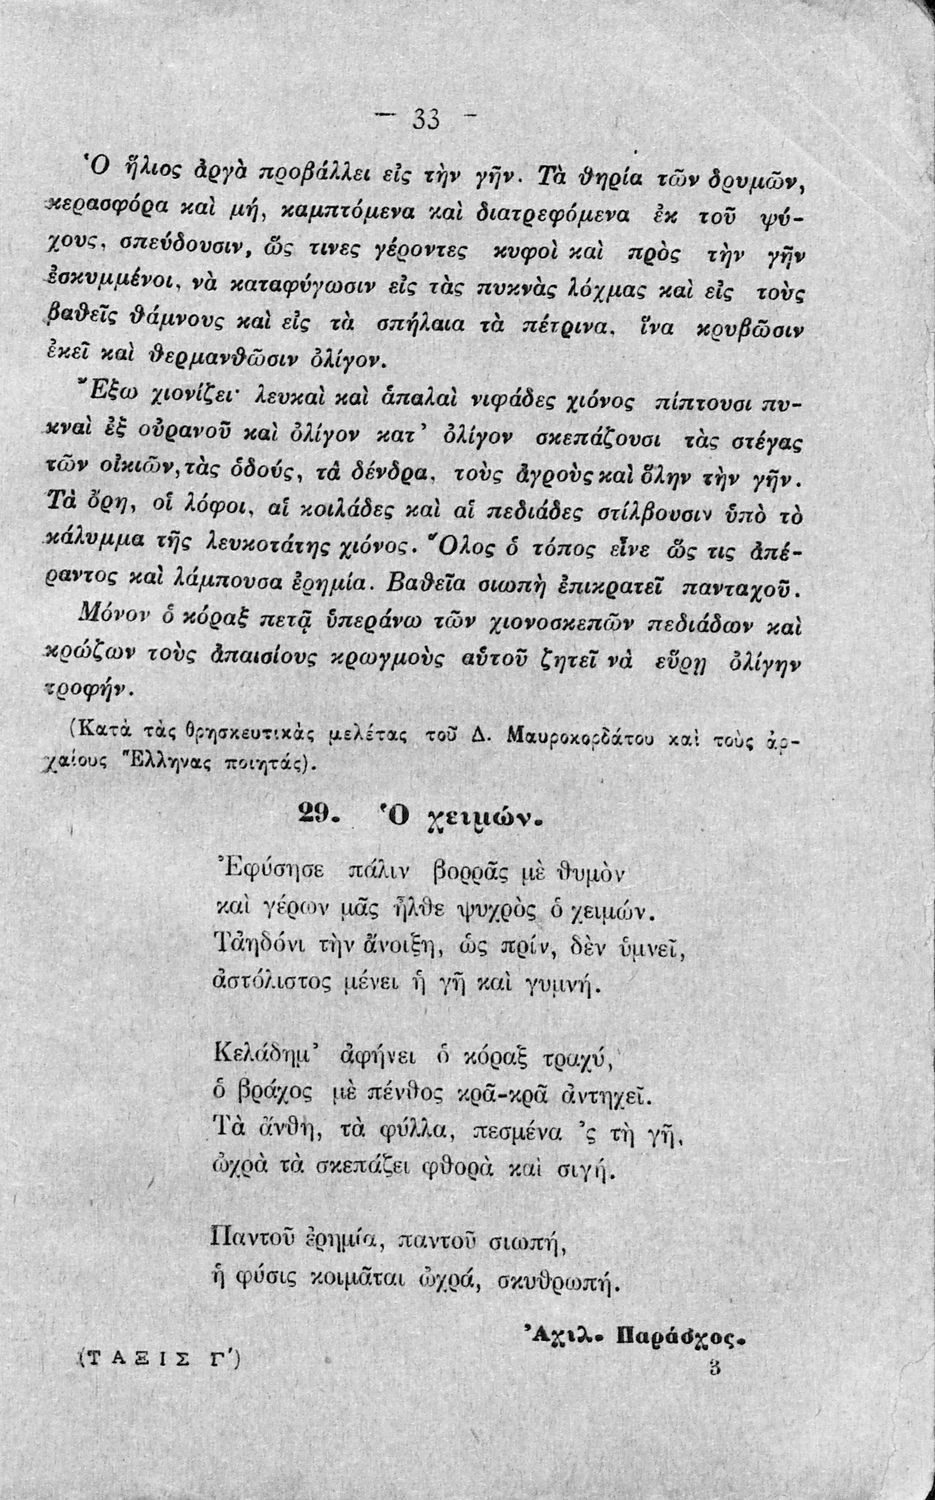 — 33 —
Ὁ ἥλιος ἀργὰ προβάλλει εἰς τὴν γῆν. Τὰ θηρία τῶν δρυμῶν,
κερασφόρα καὶ μή, καμπτόμενα καὶ διατρεφόμενα ἐκ τοῦ ψύ-
χους, σπεύδουσιν, ὥς τινες γέροντες κυφοὶ καὶ πρὸς τὴν γῆν
ἐσκυμμένοι, νὰ καταφύγωσιν εἰς τὰς πυκνὰς λόχμας καὶ εἰς τοὺς
βαθεῖς θάμνους καὶ εἰς τὰ σπήλαια τὰ πέτρινα, ἵνα κρυβῶσιν
ἐκεῖ καὶ θερμανθῶσιν ὀλίγον.
Ἔξω χιονίζει· λευκαὶ καὶ ἁπαλαὶ νιφάδες χιόνος πίπτουσι πυ-
κναὶ ἐξ οὐρανοῦ καὶ ὀλίγον κατ' ὀλίγον σκεπάζουσι τὰς στέγας
τῶν οἰκιῶν, τὰς ὁδούς, τὰ δένδρα, τοὺς ἀγροὺς καὶ ὅλην τὴν γῆν.
Τὰ ὄρη, οἱ λόφοι, αἱ κοιλάδες καὶ αἱ πεδιάδες στίλβουσιν ὑπὸ τὸ
κάλυμμα τῆς λευκοτάτης χιόνος. Ὅλος ὁ τόπος εἶνε ὥς τις ἀπέ-
ραντος καὶ λάμπουσα ἐρημία. Βαθεῖα σιωπὴ ἐπικρατεῖ πανταχοῦ.
Μόνον ὁ κόραξ πετᾷ ὑπεράνω τῶν χιονοσκεπῶν πεδιάδων καὶ
κρώζων τοὺς ἀπαισίους κρωγμοὺς αὑτοῦ ζητεῖ νὰ εὕρῃ ὀλίγην
τροφήν.
(Κατὰ τὰς θρησκευτικὰς μελέτας τοῦ Δ. Μαυροκορδάτου καὶ τοὺς ἀρ-
χαίους Ἕλληνας ποιητάς).
29. Ὁ χειμών.
Ἐφύσησε πάλιν βορρᾶς μὲ θυμὸν
καὶ γέρων μᾶς ἦλθε ψυχρὸς ὁ χειμών.
Τἀηδόνι τὴν ἄνοιξη, ὡς πρίν, δὲν ὑμνεῖ,
ἀστόλιστος μένει ἡ γῆ καὶ γυμνή.
Κελάδημ' ἀφήνει ὁ κόραξ τραχύ,
ὁ βράχος μὲ πένθος κρᾶ-κρᾶ ἀντηχεῖ.
Τὰ ἄνθη, τὰ φύλλα, πεσμένα 'ς τὴ γῆ,
ὠχρὰ τὰ σκεπάζει φθορὰ καὶ σιγή.
Παντοῦ ἐρημία, παντοῦ σιωπή,
ἡ φύσις κοιμᾶται ὠχρά, σκυθρωπή.
Ἀχιλ. Παράσχος.
(ΤΑΞΙΣ Γ')
3